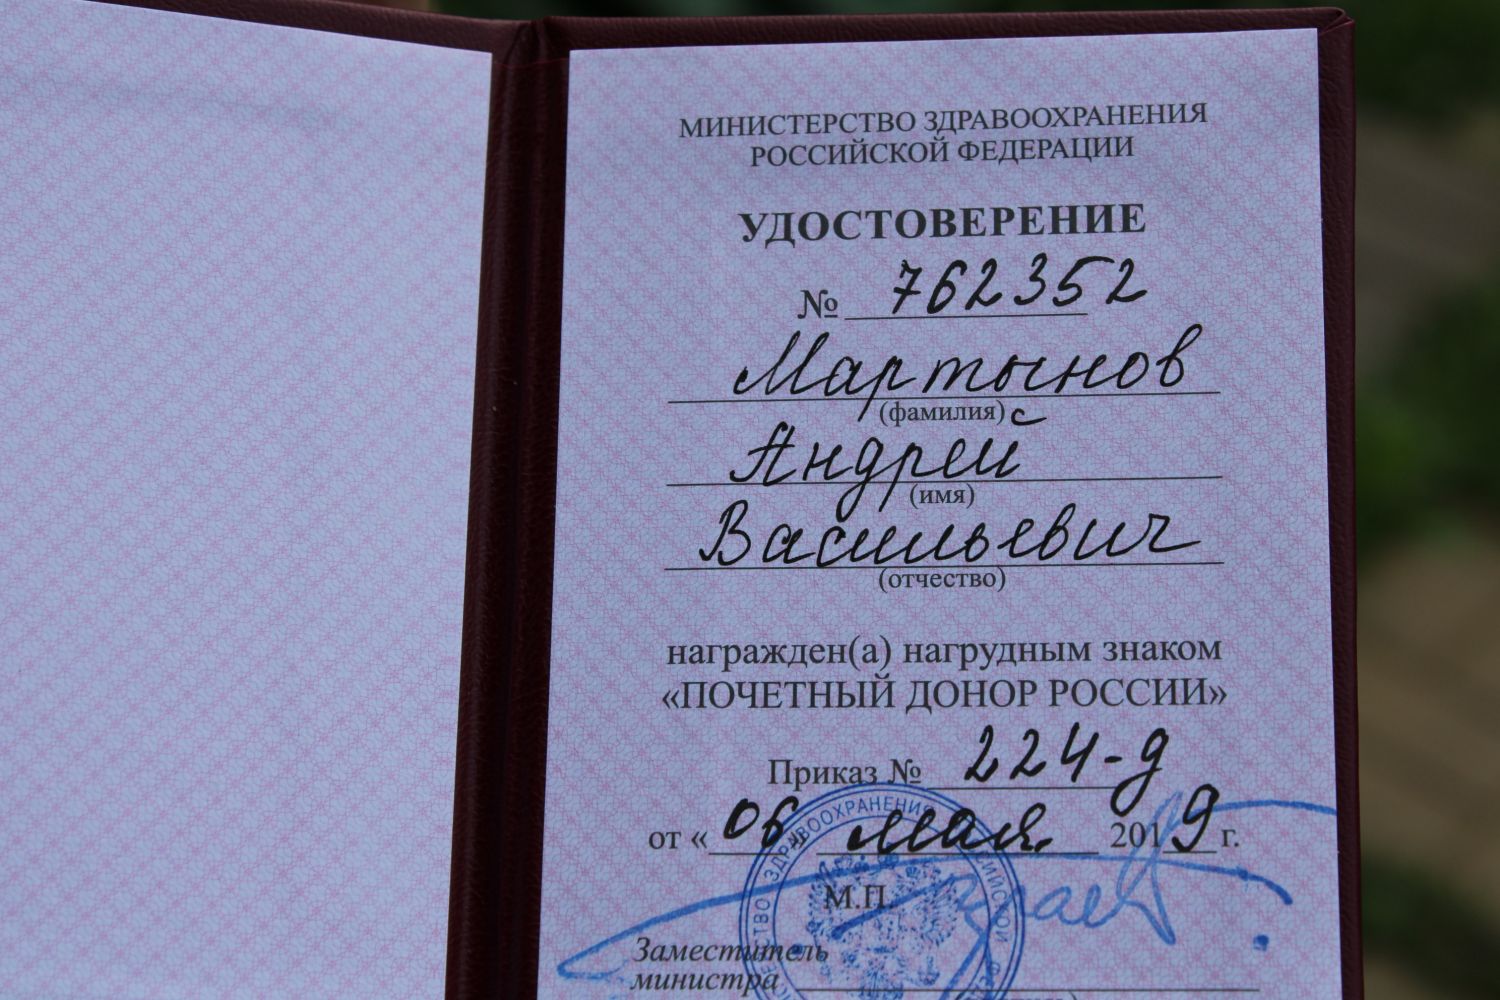 МИНИСТЕРСТВО ЗДРАВООХРАНЕНИЯ
РОССИЙСКОЙ ФЕДЕРАЦИИ
УДОСТОВЕРЕНИЕ
№ 762352
Мартынов
(фамилия)
Андрей
(имя)
Васильевич
(отчество)
награжден(а) нагрудным знаком
«ПОЧЕТНЫЙ ДОНОР РОССИИ»
Приказ № 224-д
от «06» мая 2019 г.
М.П.
Заместитель
министра
ЗДРАВООХРАНЕНИЯ